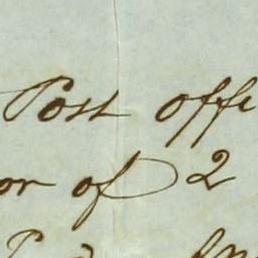 Post offi
or of 2